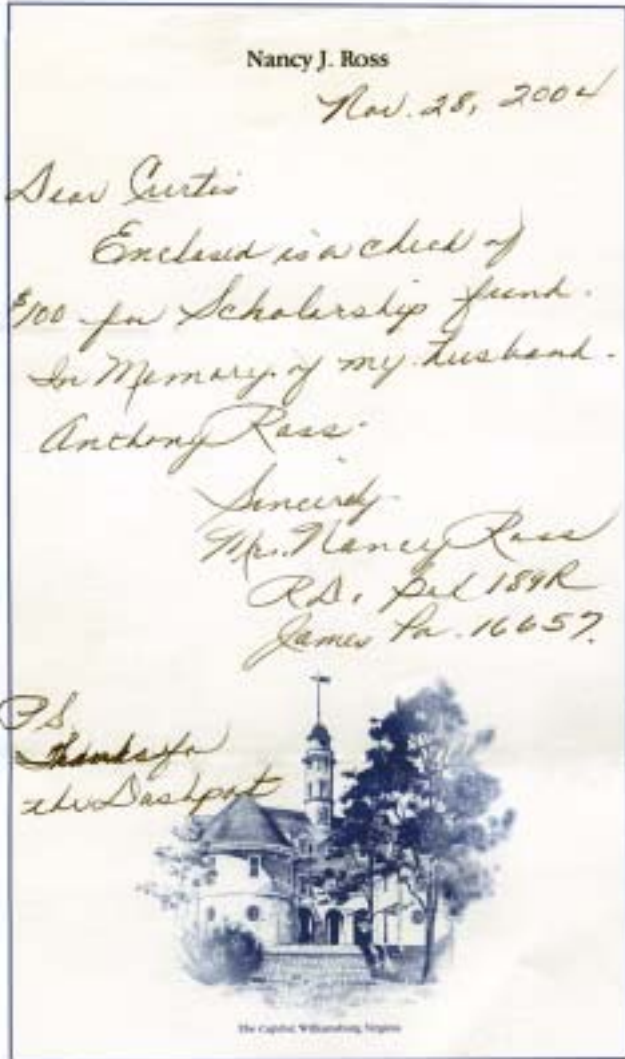 Nancy J. Ross
Nov. 28, 2004
Dear Curtis
Enclosed is a check of
$100 for Scholarship fund.
In Memory of my husband.
Anthony Ross
Sincerly
Mrs. Nancy Ross
R.D. 1 189R
James Pa. 16657.
P.S.
Thanks for
the Dashpot
The Capitol, Williamsburg, Virginia